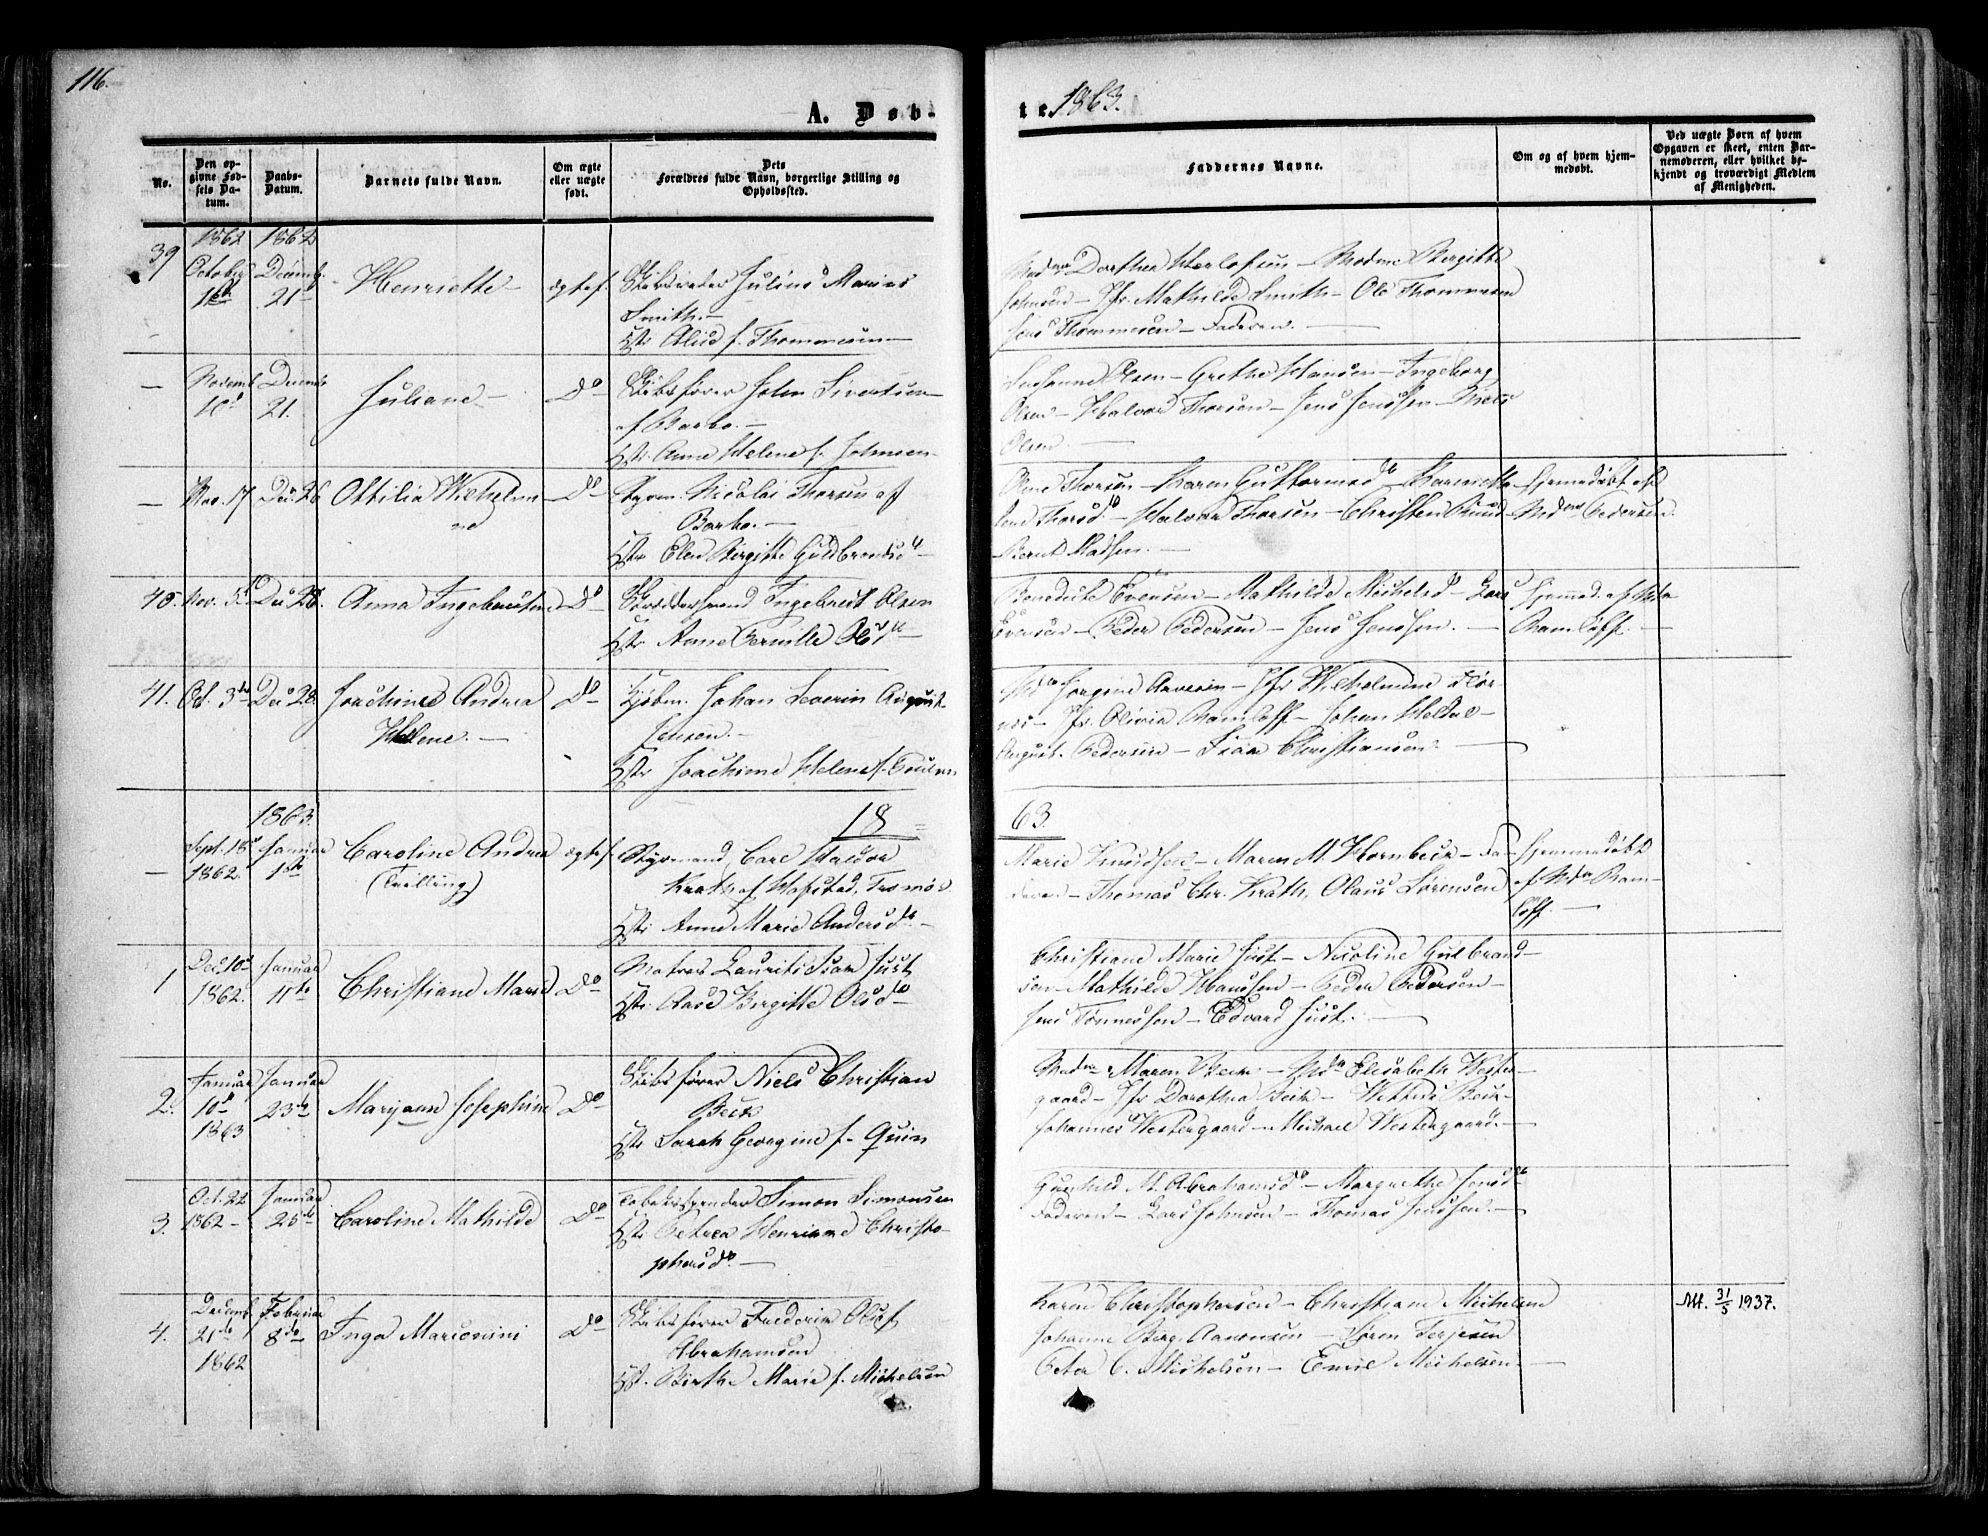 116.
A. Døb-
te. 1863.
No.
Den op-
givne Fød-
sels Da-
tum.
Daabs-
Datum.
Barnets fulde Navn.
Om ægte
eller uægte
født.
Dets
Forældres fulde Navn, borgerlige Stilling og
Opholdssted.
Faddernes Navne.
Om og af hvem hjem-
medøbt.
Ved uægte Børn af hvem
Opgaven er skeet, enten Bar-
nemoderen, eller hvilket be-
kjendt og troværdigt Medlem
af Menigheden.
39
1862
October
1862
Decemb.
21
Henriette
ægtef.
Julius Marius
Smith.
Hstr. f. Thommesen
Dorthea Herlofsen - Madme Birgitte
Johnsen - Jfr. Mathilde Smith - Ole Thommesen
Jens Thommesen - Faderen.
Novemb
10d
Decemb
21.
Juliane
Do
Skibsfører John Sivertsen
af Barbo.
Hstr. Anne Helene f. Johnsen
Olsen - Grethe Hansen - Ingeborg
Olsen - Halvor Thorsen - Jens Jenssen - Niels
Olsen.
Nov. 17
Dec 26
Ottilia Wilhelmi
ne
Do
Styrm. Nicolai Thorsen af
Barbo.
Hstr. Elen Birgitte Guldbrandsd
Thorsen - Karen Guttormsd
Halvor Thorsen - Christen Knud
Bernt Madsen.
Hjemmedøbt af
Mdm Pedersen.
40.
Nov. 5
Dec 28
Anna Ingebertine
Do
Ingebret Olsen
Hstr. Anne Pernille Olsd
Benedicte Evensen - Mathilde Michelsd - Lars
Evensen - Peder Pedersen - Jens Jenssen.
Hjemmed. af Mda
Ramløff.
41.
Oct. 3
Dec 28.
Joachime Andrea
Helene.
Do
Kjøbm. Johan Severin August
Jensen.
Hstr. Joachime Helene f. Poulsen
Jørgine - Jfr. Wilhelmine
Jfr. Olivia Ramløff - Johan
August Pedersen - Isak Christiansen.
18
63.
Sept. 18
1862.
1863.
Januar
1ste
Caroline Andrea
(Tvilling)
ægtef.
Styrmand, Carl Haldor
Krath af Hofstad, Tromø
Hstr. Anne Marie Andersd.
Marie Knudsen - Maren M. Hornbeck - Fa
deren - Thomas Chr. Krath, Olaus Sørensen
Hjemmedøbt
af Mda Ram-
løff.
1
Dec. 10
1862.
Januar
11te
Christiane Marie
Do
Matros Laurits Isak Just
Hstr. Aase Birgitte Olsd
Christiane Marie Just - Nicoline Gulbrand-
sen - Mathilde Hanssen - Peder Pedersen -
Jens Tønnessen - Edvard Just.
2.
Januar
10d
1863
Januar
23de
Marijane Josephine
Do
Skibsfører Niels Christian
Beck
Hstr. Sarah Georgine f. Quin
Madme Maren Beck - Mda Elisabeth Wester-
gaard - Jfr. Dorothea Beck - Beck
Johannes Westergaard - Michael Westergaard.
3.
Oct. 22
1862
Januar
25de
Caroline Mathilde
Do
Tobaksspinder Simon Simonsen
Hstr. Petrea Henriane Christo-
phersd.
Gunhild M. Abrahamsd - Margrethe Jensd
Faderen - Lars Johnsen - Thomas Jenssen.
4.
Decemb.
21de
1862
Februar
8de
Inga Marionini
Do
Skibsfører Frederik Oluf
Abrahamsen
Hst. Birthe Marie f. Michelsen
Karen Christophersen - Christiane Michelsen
Johanne Berg Aanonsen - Søren Terjesen
Peter C. Michelsen - Emil Michelsen
Att. 31/5 1937.